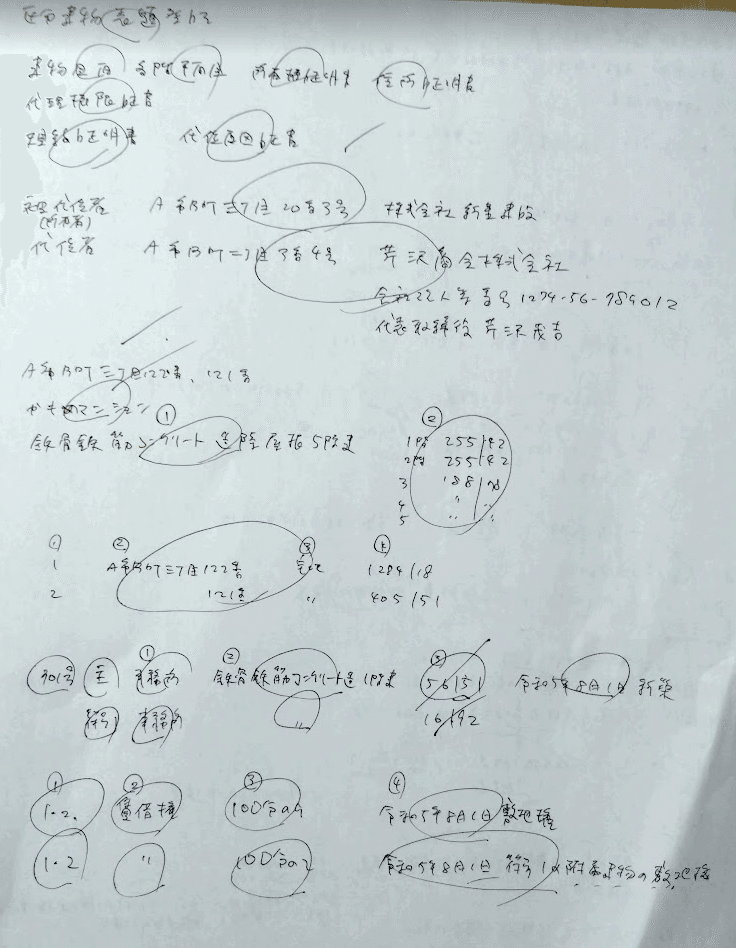 区分建物表題登記
建物図面 各階平面図 所有権証明書 住所証明書
代理権限証書
規約証明書 代位原因証書
被代位者 A市B町三丁目20番3号 株式会社新星建設
(所有者)
代位者 A市B町二丁目3番4号 芹沢商会株式会社
会社法人等番号 1234-56-789012
代表取締役 芹沢茂吉
A市B町三丁目122番、121番
かもめマンション ①
鉄骨鉄筋コンクリート造陸屋根5階建 ②
1階 255|42
2階 255|42
3 188|78
4 〃 〃
5 〃 〃
① ② ③ ④
1 A市B町三丁目122番 宅地 1284|18
2 121番 〃 405|51
① ② ③
101号 主 事務所 鉄骨鉄筋コンクリート造1階建 56|51 令和5年8月1日新築
符号1 事務所 〃 16|92
① ② ③ ④
1・2 賃借権 100分の4 令和5年8月1日敷地権
1・2 〃 100分の2 令和5年8月1日 符号1の附属建物の敷地権